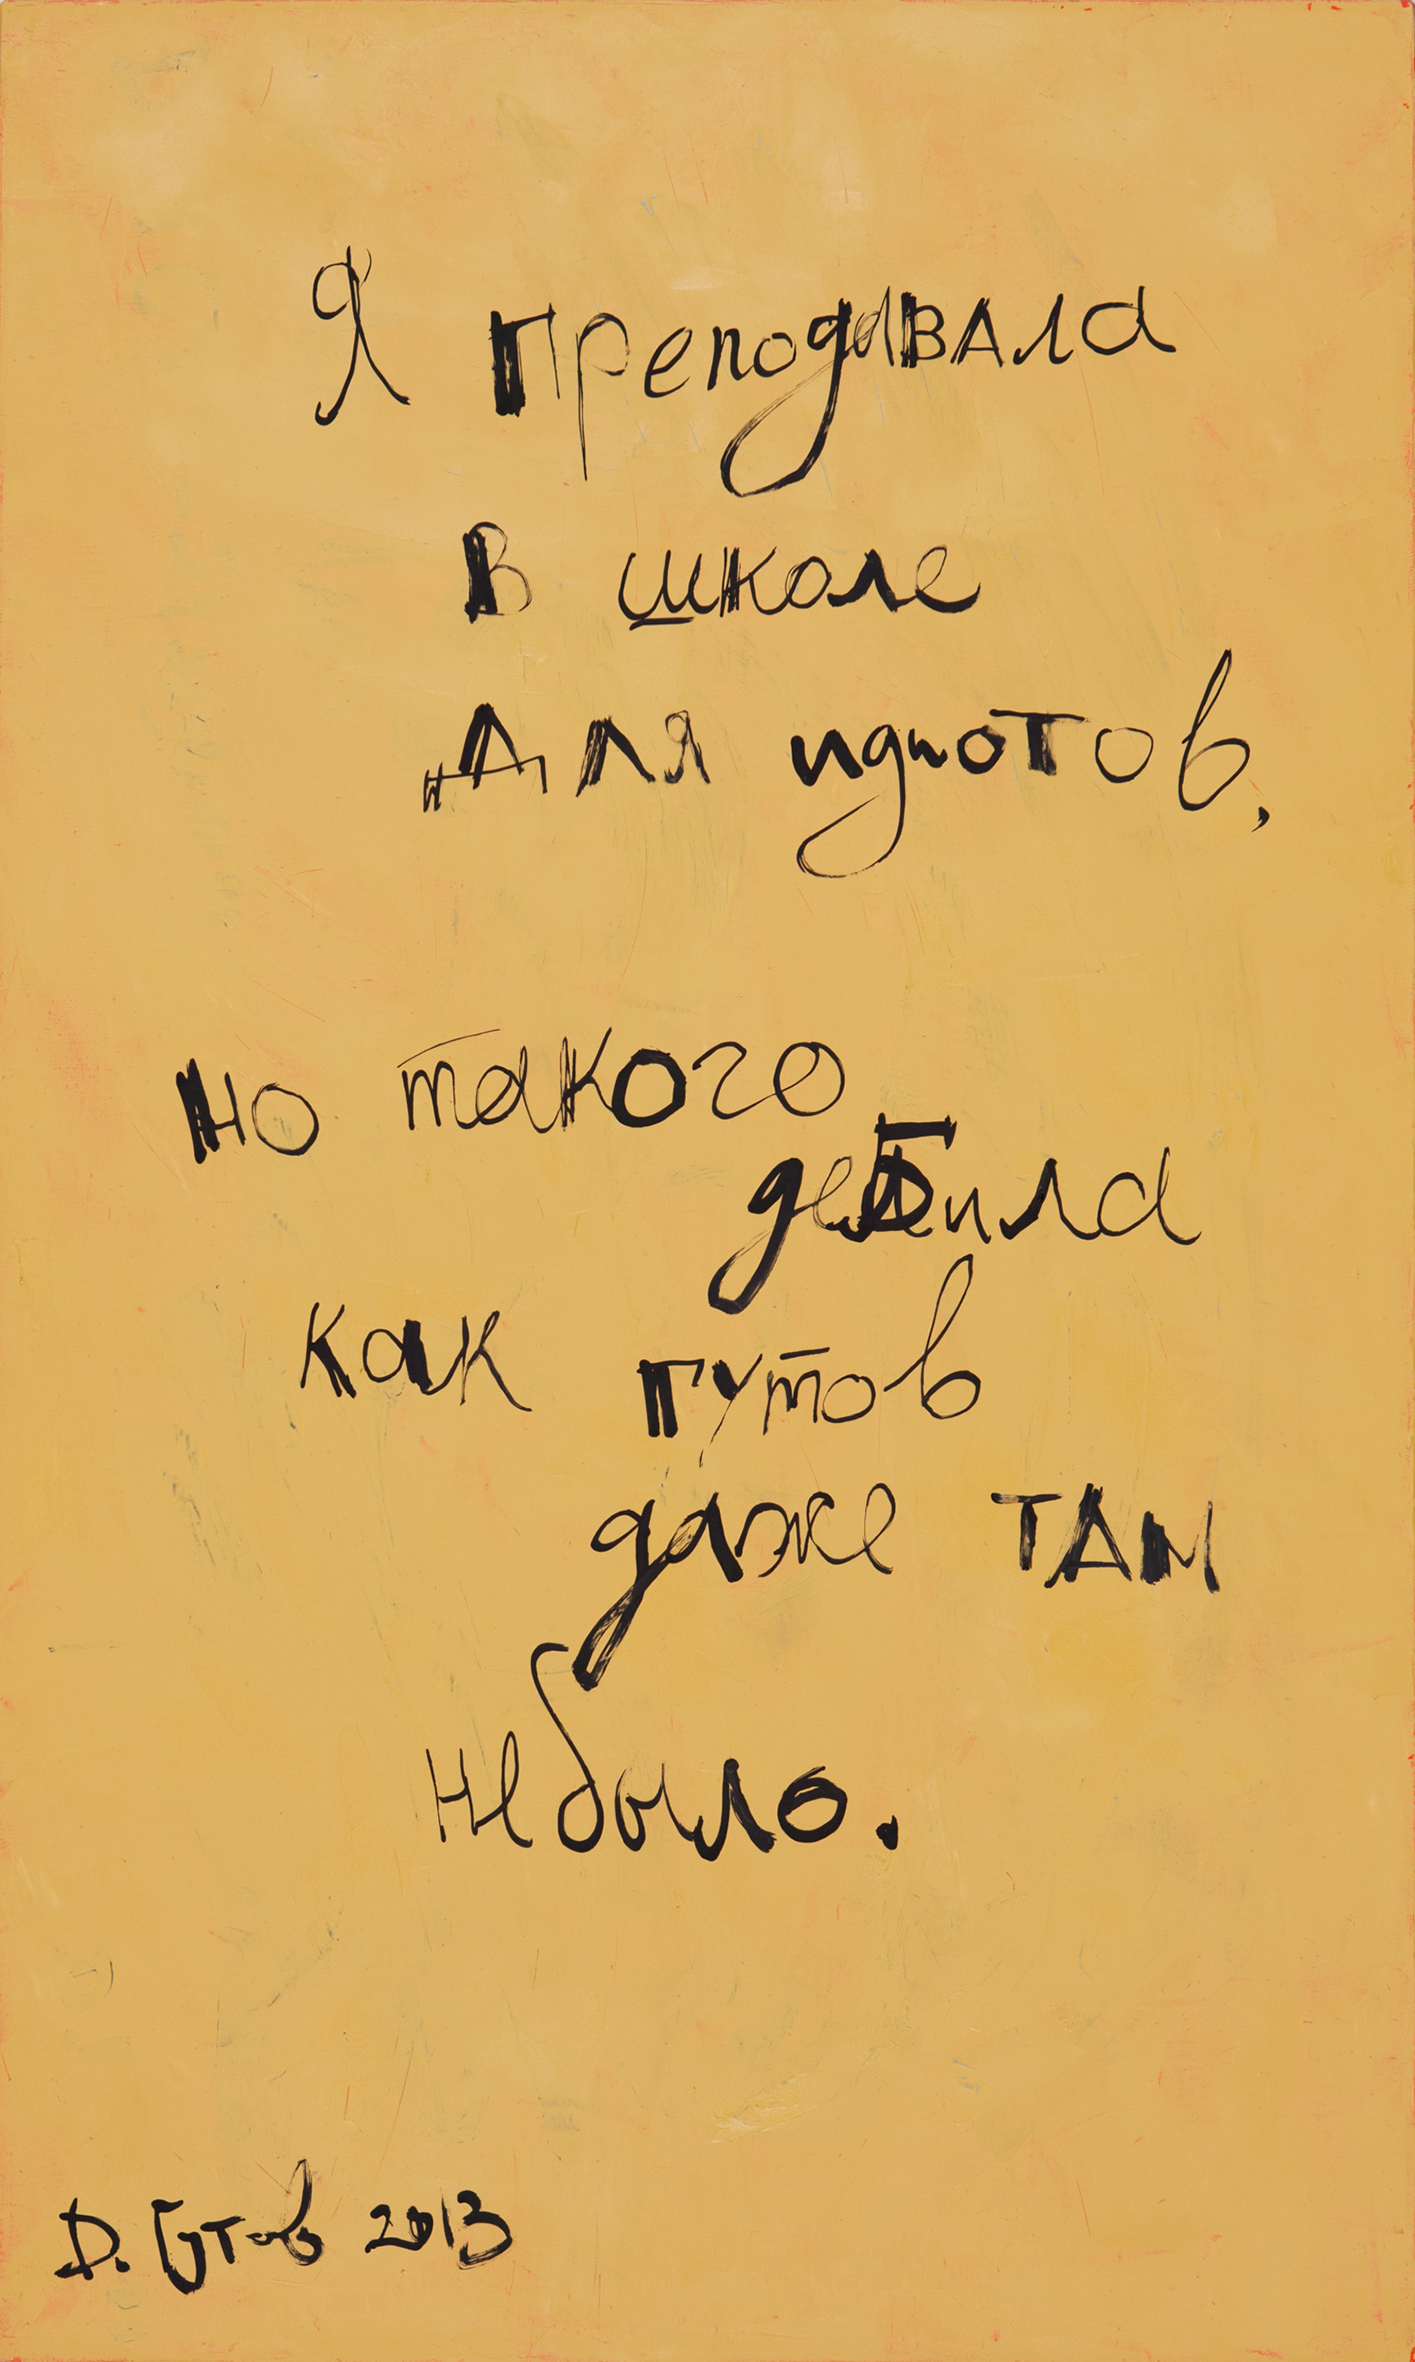 Я преподавала
в школе
для идиотов,
но такого
дебила
как гутов
даже там
не было.
D. Гутов 2013